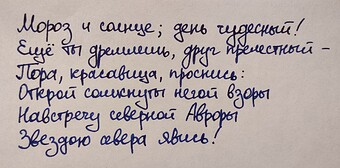 Мороз и солнце; день чудесный!
Ещё ты дремлешь, друг прелестный –
Пора, красавица, проснись:
Открой сомкнуты негой взоры
Навстречу северной Авроры
Звездою севера явись!